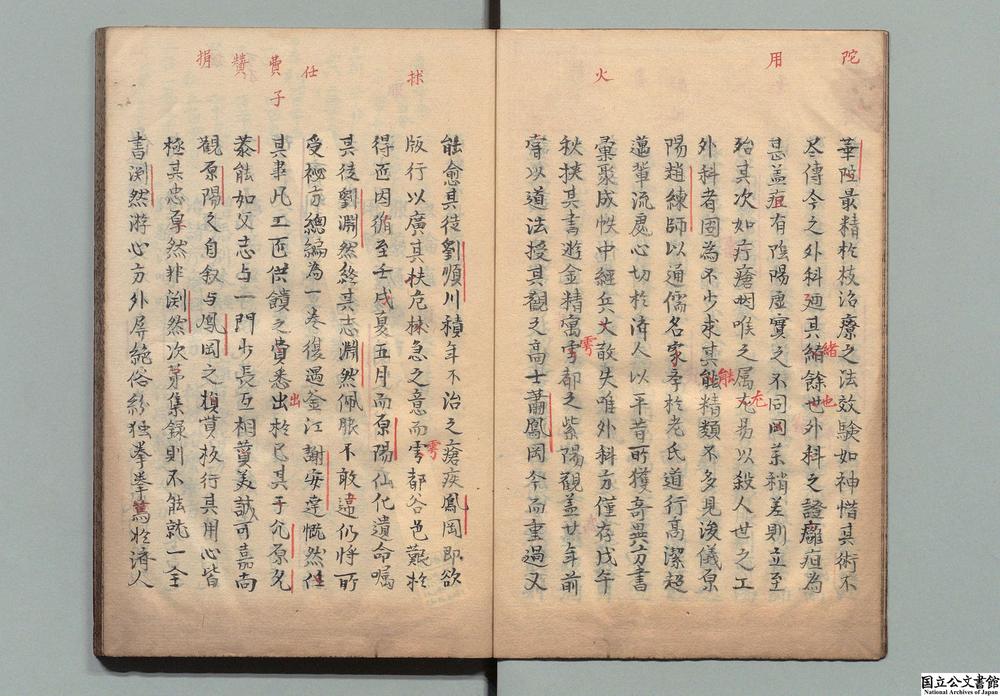 陀
用
火
華陀最精於枝治療之法效驗如神惜其術不
尽傳今之外科廼其緒餘也外科之證癰疽為
甚盖疽有陰陽虚實之不同用茱稍差則立至
殆其次如疔瘡咽喉之属尤易以殺人世之工
外科者固為不少求其能精類不多見浚儀原
陽趙練師以通儒名家孝於老氏道行高潔超
邁輩流處心切於済人以平昔所獲奇異方書
彙聚成帙中經兵火散失唯外科方僅存戊午
秋挟其書遊金精寓雩都之紫陽觀盖廿年前
甞以道法授其觀之高士蕭鳳岡今而重過又
緒
也
能
尤
雩
抹
任
費
子
賛
捐
能愈其徒劉順川積年不治之瘡疾鳳岡即欲
版行以廣其扶危抹急之意而雩都谷邑艱於
得匠因循至壬戌夏五月而原陽仙化遺命嘱
其徒劉淵然終其志淵然佩服不敢違仍将所
受秘方總編為一巻復遇釜江謝安達慨然任
其事凡工匠供饋之費悉出於己其子允原允
泰能如父志与一門少長互相賛美誠可嘉尚
觀原陽之自叙与鳳岡之損貲板行其用心皆
極其忠厚然非淵然次第集録則不能就一全
書淵然游心方外屏絶俗紛独拳拳篤於済人
雩
出
国立公文書館
National Archives of Japan